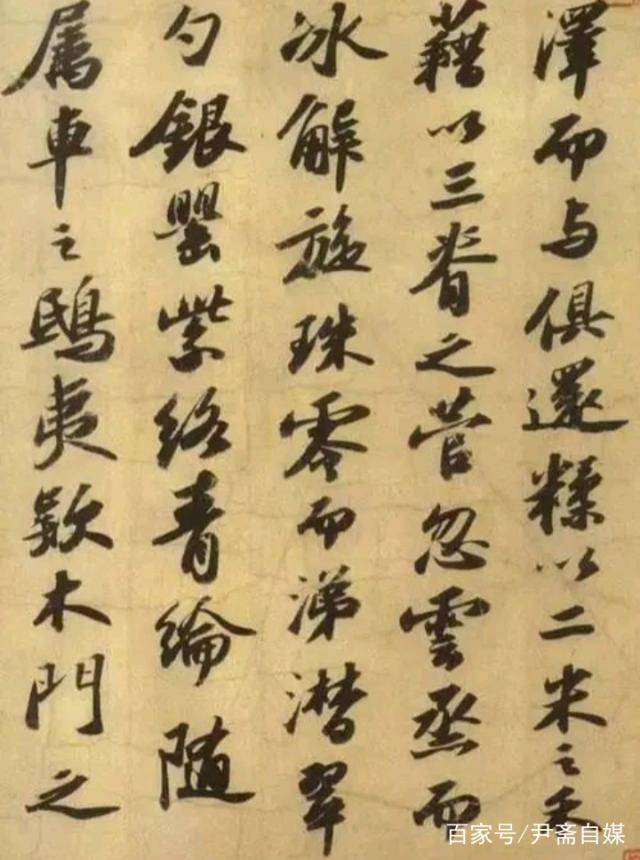 澤而与俱還糅以二米之禾
藉以三脊之菅忽雲烝而
冰解旋珠零而涕潸翠
勺銀罌紫絡青綸随
属車之鴟夷欵木門之
百家号/尹斋自媒